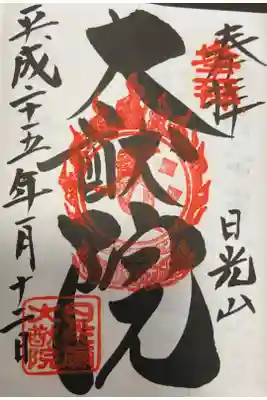 奉拝
日光山
大猷院
平成二十五年一月十二日
大猷院